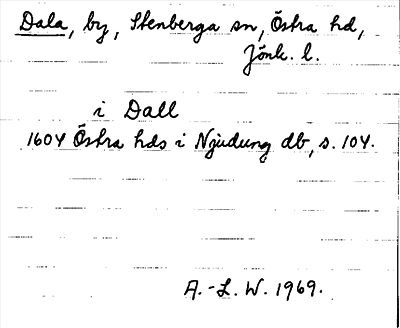 Dala, by, Stenberga sn, Östra hd,
Jönk. l.
i Dall
1604 Östra hds i Njudung db, s. 104.
A.-L. W. 1969.